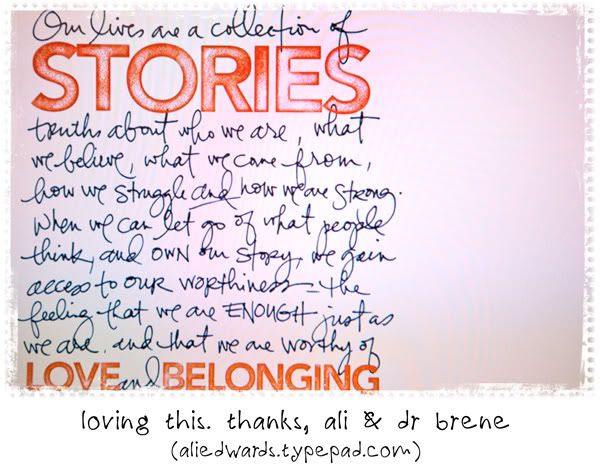 Our lives are a collection of
STORIES
truths about who we are, what
we believe, what we came from,
how we struggle and how we are strong.
When we can let go of what people
think, and OWN our story, we gain
access to our worthiness - the
feeling that we are ENOUGH just as
we are, and that we are worthy of
LOVE and BELONGING
loving this. thanks, ali & dr brene
(aliedwards.typepad.com)